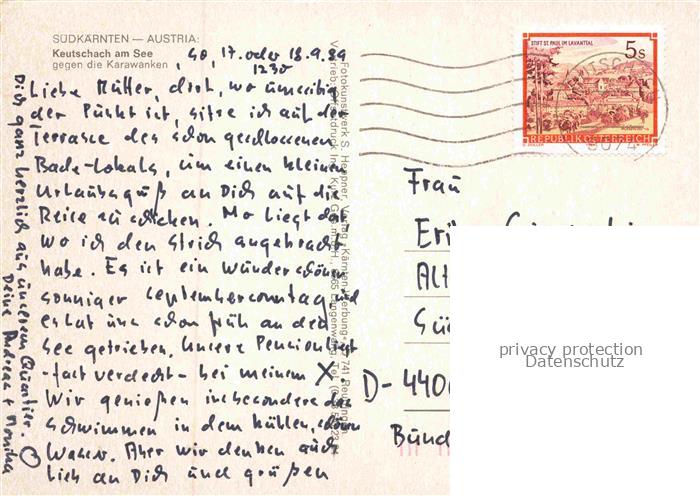 SÜDKÄRNTEN — AUSTRIA:
Keutschach am See
gegen die Karawanken
So, 17. oder 18.9.89
12 30
Liebe Mutter, dort, wo ungefähr
der Punkt ist, sitze ich auf der
Terrasse des schon geschlossenen
Bade-Lokals, um einen kleinen
Urlaubsgruß an Dich auf die
Reise zu schicken. Mo liegt dort,
wo ich den Strich angebracht
habe. Es ist ein wunderschöner
sonniger Septembersonntag und
es hat uns schon früh an den
See getrieben. Unsere Pension ist
- fast verdeckt - bei meinem X.
Wir genießen insbesondere das
Schwimmen in dem kühlen, klaren
Wasser. Aber wir denken auch
lieb an Dich und grüßen
Dich ganz herzlich aus unserem Quartier.
Deine Andreas + Monika
STIFT ST. PAUL IM LAVANTTAL
5s
REPUBLIK ÖSTERREICH
Frau
D-440
privacy protection
Datenschutz